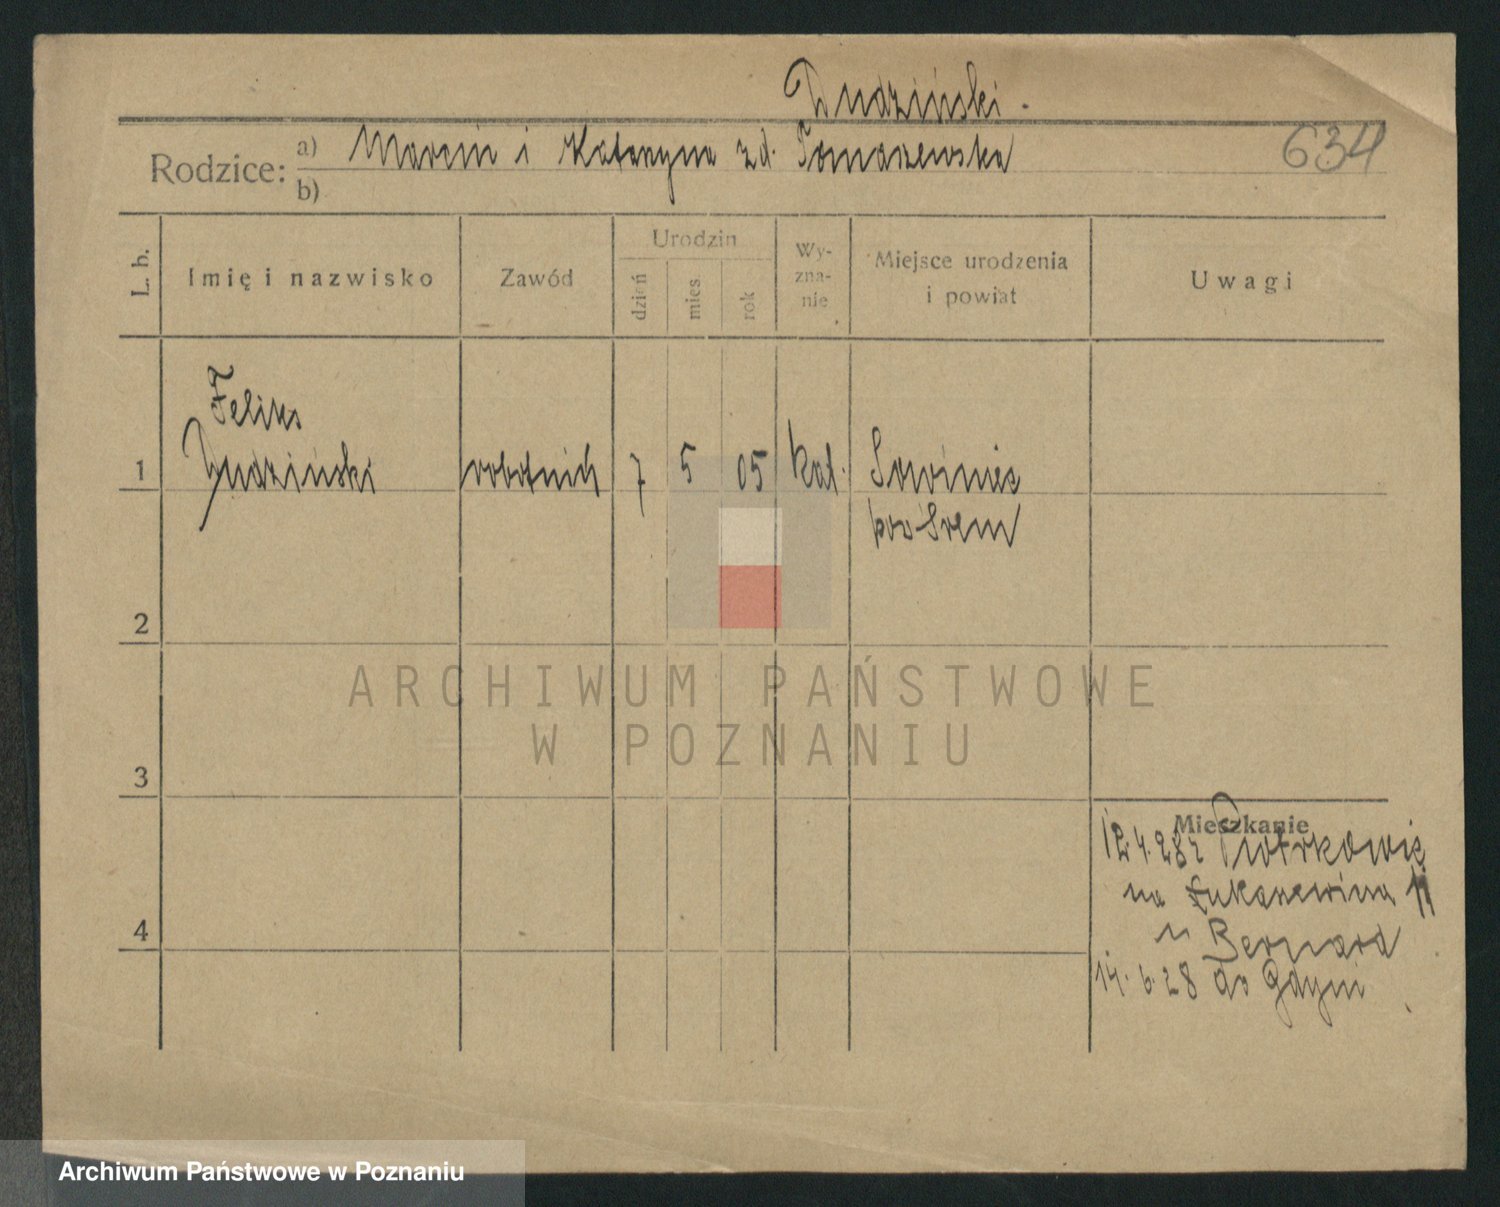 Dudziński.
Rodzice: a) Marcin i Katarzyna zd. Tomaszewska
634
b)
L. b.
Imię i nazwisko
Zawód
Urodzin
dzień
mies.
rok
Wy-
zna-
nie
Miejsce urodzenia
i powiat
Uwagi
Feliks
1 Dudziński robotnik 7 5 05 kat. Sowiniec
pow Śrem
2
ARCHIWUM PAŃSTWOWE
W POZNANIU
3
Mieszkanie
12.4.28 z Piotrkowic
na Łukaszewicza 11
u Bernard
4
14.6.28 do Gdyni
Archiwum Państwowe w Poznaniu